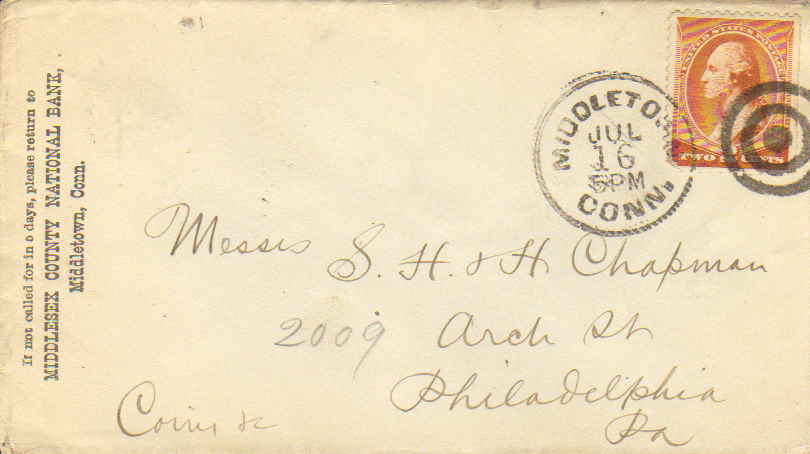 If not called for in 5 days, please return to
MIDDLESEX COUNTY NATIONAL BANK,
Middletown, Conn.
UNITED STATES POSTAGE
TWO CENTS
MIDDLETOWN
JUL
16
5PM
CONN.
Messrs S. H. & H Chapman
2009 Arch St
Philadelphia
Pa
Coins &c